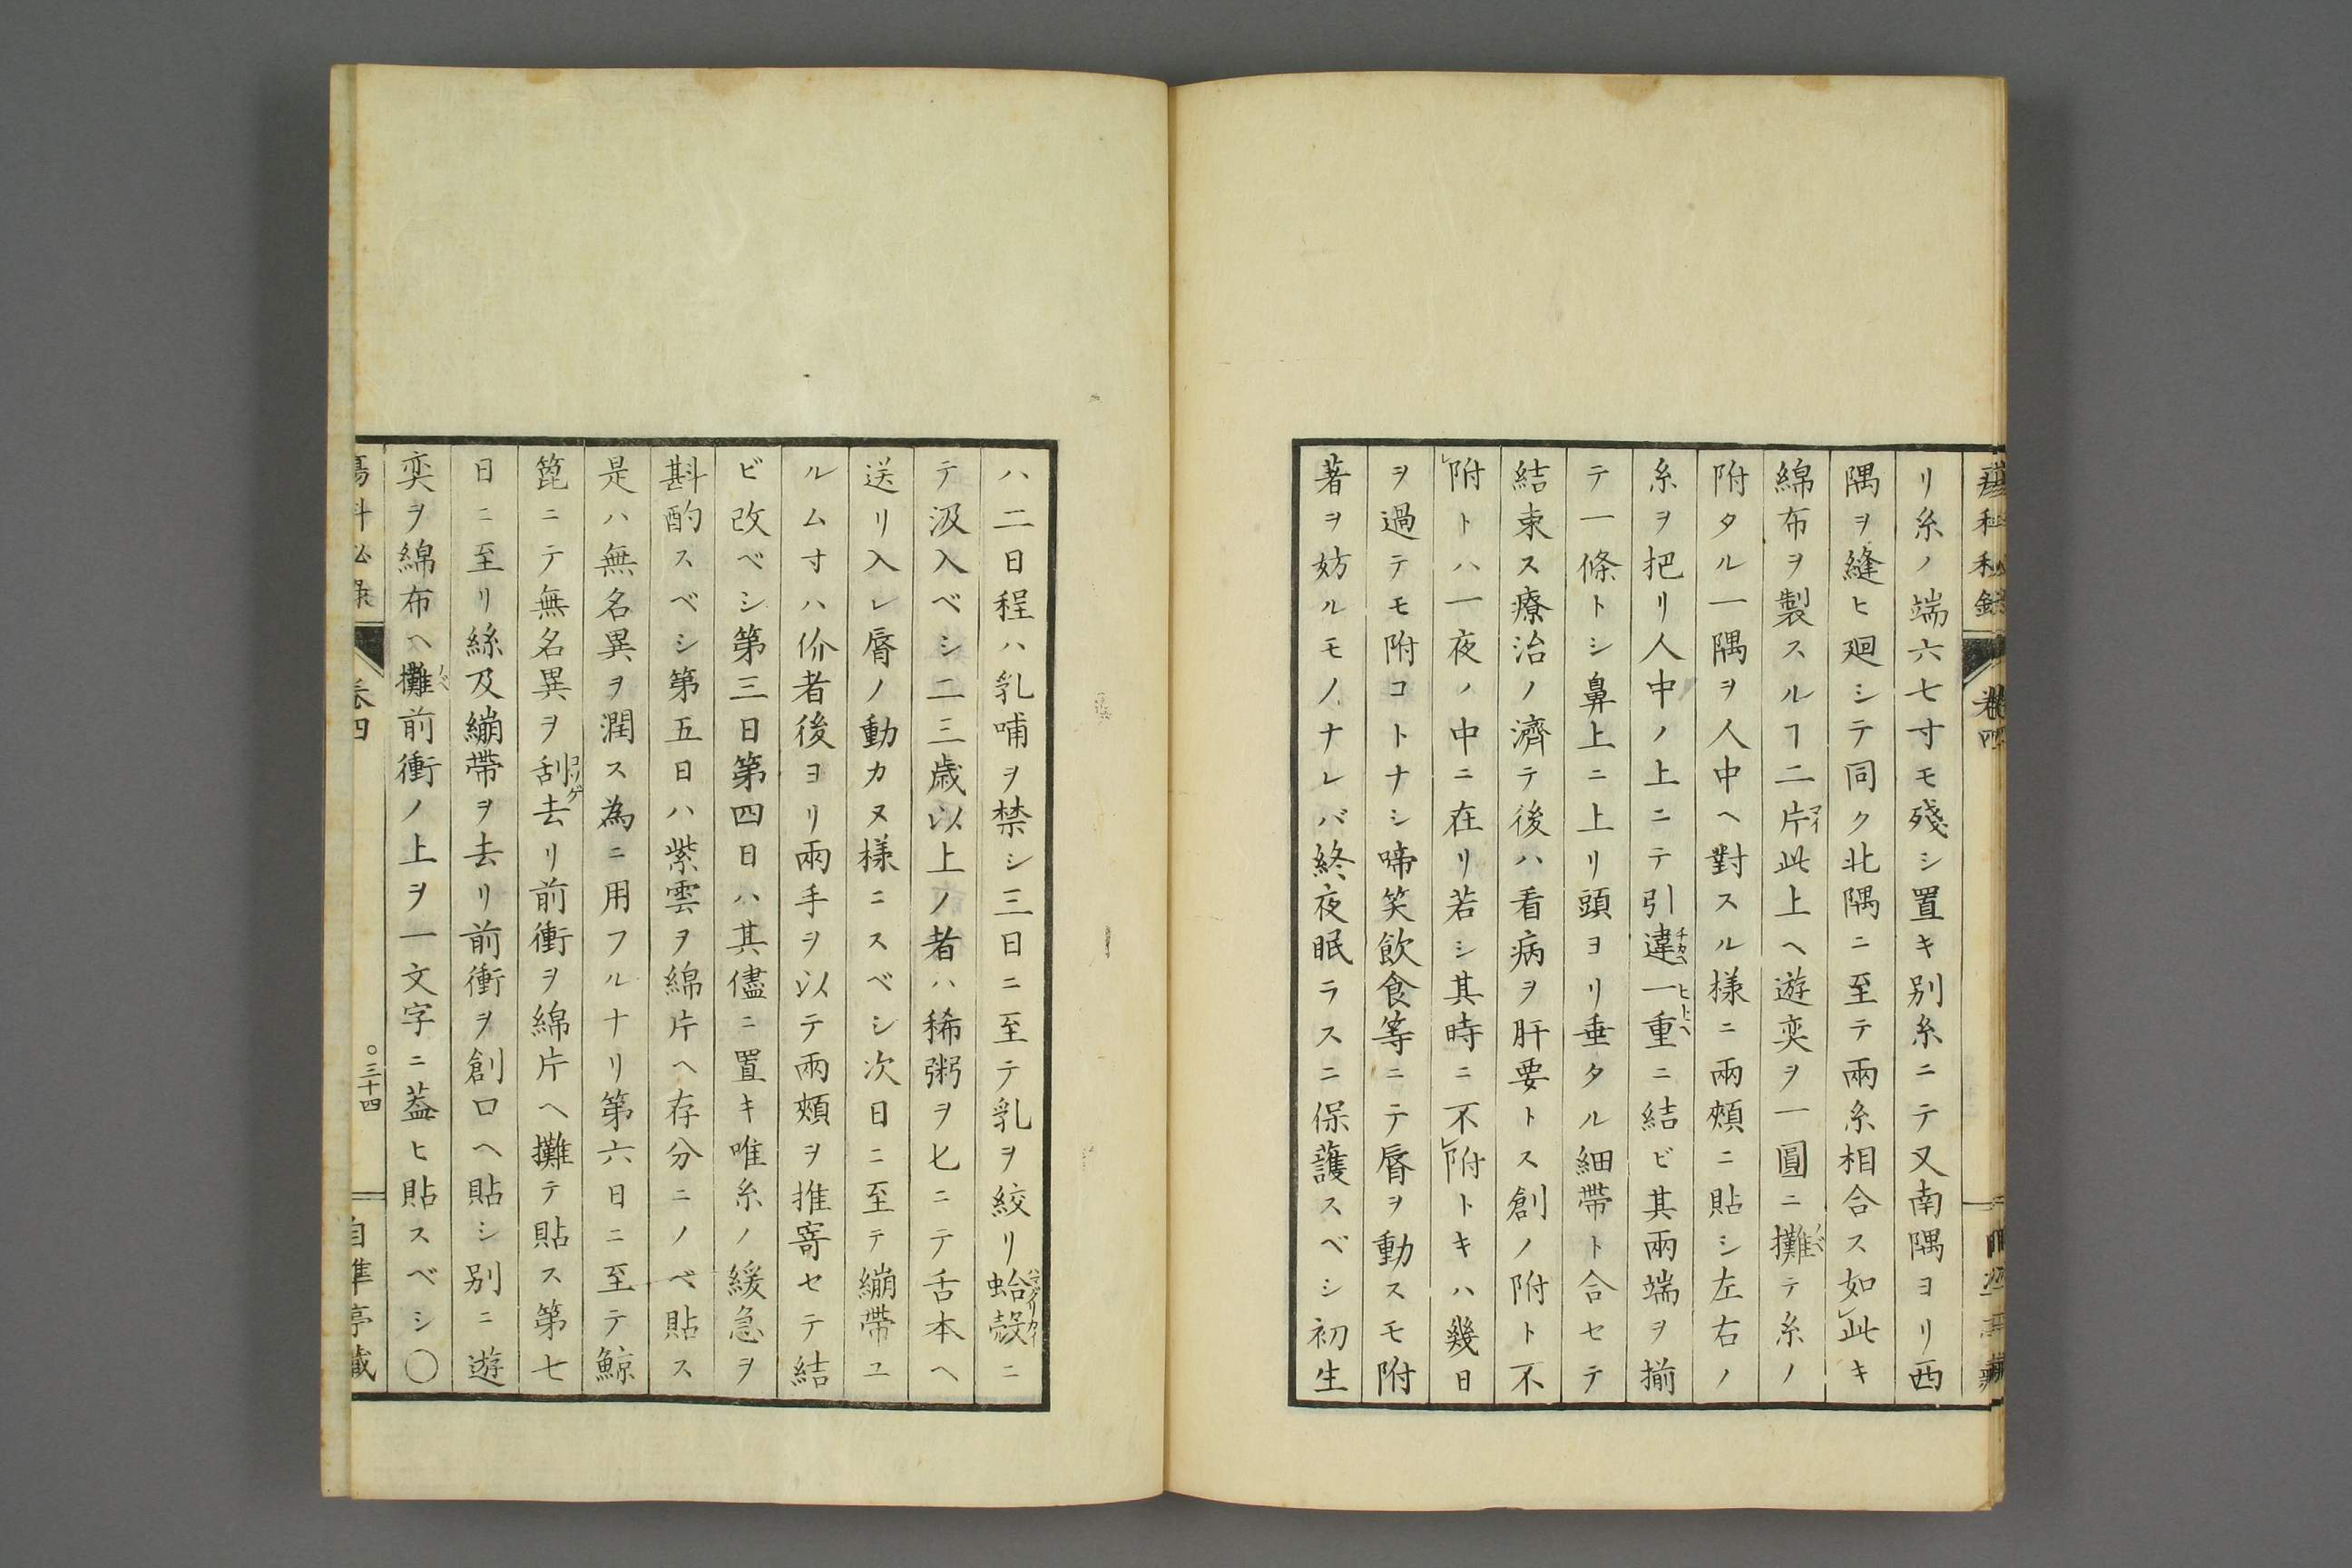 リ糸ノ端六七寸モ殘シ置キ別糸ニテ又南隅ヨリ西
隅ヲ縫ヒ廻シテ同ク北隅ニ至テ兩糸相合ス如レ此キ
綿布ヲ製スルヿ二片マイ此上ヘ遊奕ヲ一圓ニ攤ノバテ糸ノ
附タル一隅ヲ人中ヘ對スル樣ニ兩頰ニ貼シ左右ノ
糸ヲ把リ人中ノ上ニテ引違チカヘ一重ヒトヘニ結ビ其兩端ヲ揃
テ一條トシ鼻上ニ上リ頭ヨリ垂タル細帶ト合セテ
結束ス療治ノ濟テ後ハ看病ヲ肝要トス創ノ附ト不
レ附トハ一夜ノ中ニ在リ若シ其時ニ不レ附トキハ幾日
ヲ過テモ附コトナシ啼笑飲食等ニテ脣ヲ動スモ附
著ヲ妨ルモノナレバ終夜眠ラスニ保護スベシ初生
ハ二日程ハ乳哺ヲ禁シ三日ニ至テ乳ヲ絞リ蛤殻ハマグリカイニ
テ汲入ベシ二三歳以上ノ者ハ稀粥ヲ匕ニテ舌本ヘ
送リ入レ脣ノ動カヌ樣ニスベシ次日ニ至テ繃帶ユ
ルム寸ハ价者後ヨリ兩手ヲ以テ兩頰ヲ推寄セテ結
ビ改ベシ第三日第四日ハ其儘ニ置キ唯糸ノ緩急ヲ
斟酌スベシ第五日ハ紫雲ヲ綿片ヘ存分ニノベ貼ス
是ハ無名異ヲ潤ス為ニ用フルナリ第六日ニ至テ鯨
箆ニテ無名異ヲ刮コソゲ去リ前衝ヲ綿片ヘ攤テ貼ス第七
日ニ至リ絲及繃帶ヲ去リ前衝ヲ創口ヘ貼シ別ニ遊
奕ヲ綿布ヘ攤ノベ前衝ノ上ヲ一文字ニ蓋ヒ貼スベシ〇
卷四
〇三十四